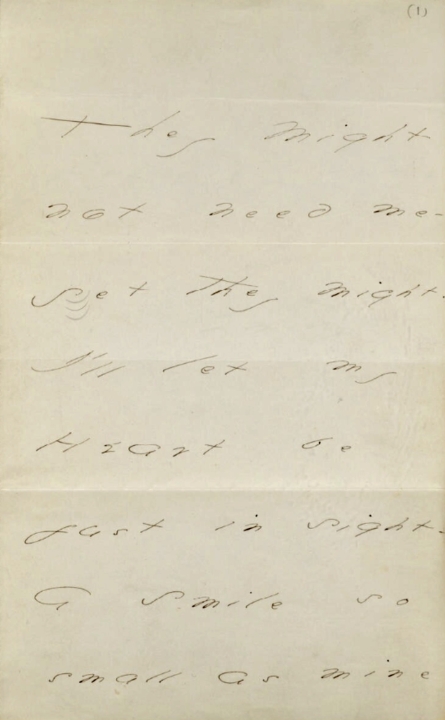 (1)
They Might
not need me -
yet they might.
I'll let my
Heart be
just in sight -
A Smile so
small as mine